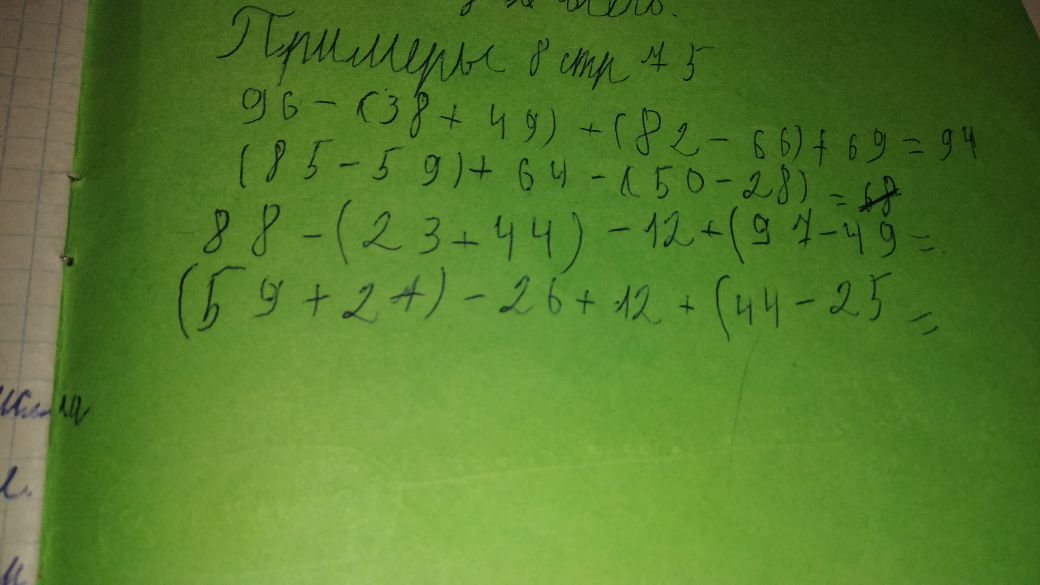 Примеры 8 стр 75
96-(38+49)+(82-66)+69=94
(85-59)+64-(50-28)=68
88-(23+44)-12+(97-49=
(59+27)-26+12+(44-25=